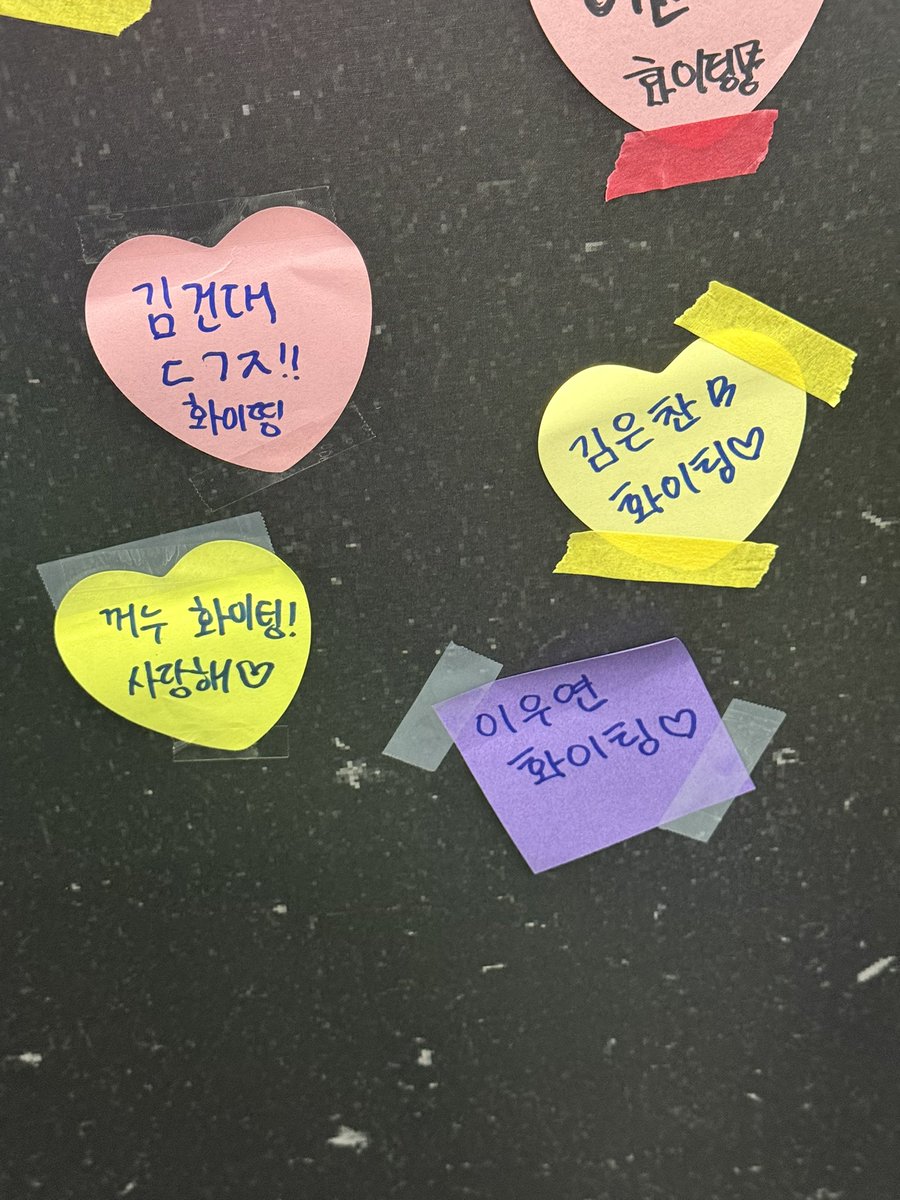 화이팅뿅
김건대
ㄷㄱㅈ!!
화이띵
김은찬
화이팅♡
꺼누 화이팅!
사랑해♡
이우연
화이팅♡